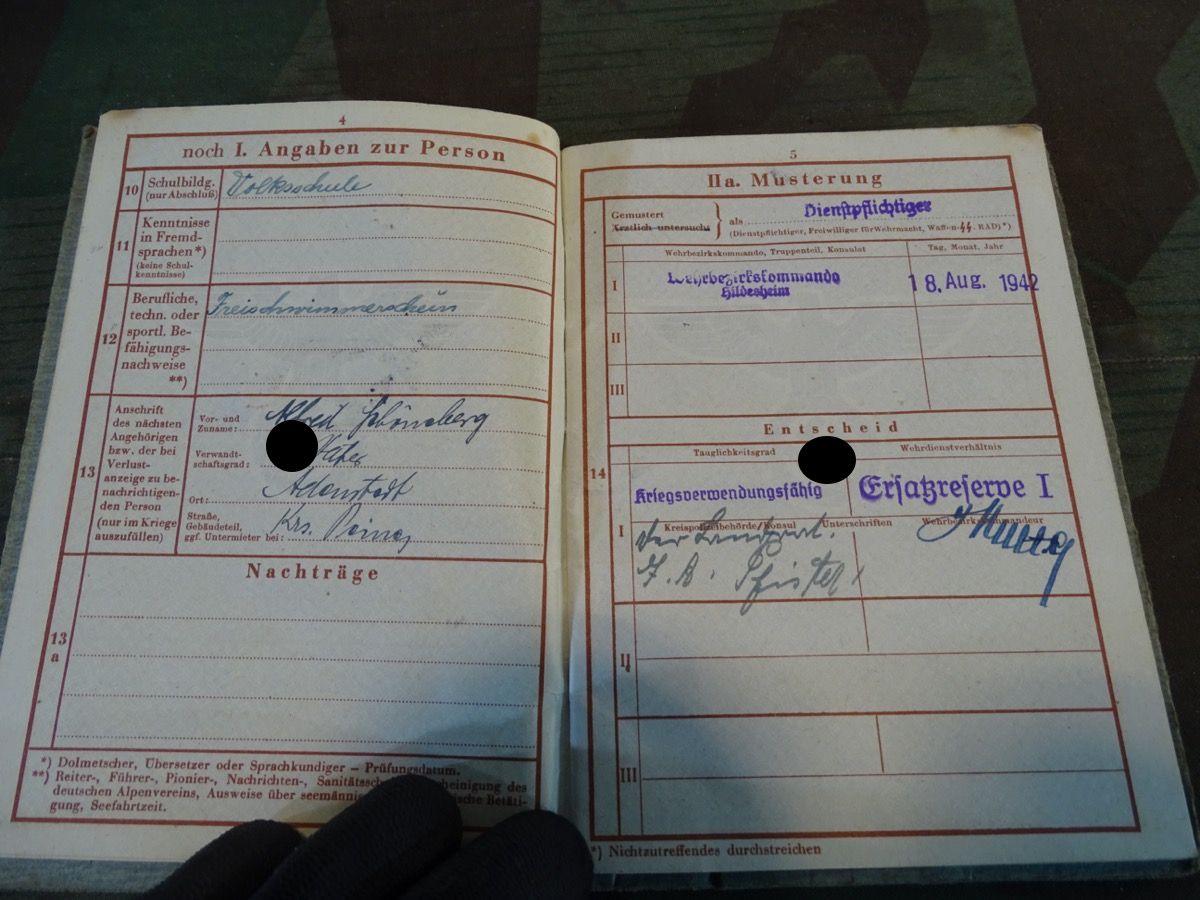 4
noch I. Angaben zur Person
10
Schulbildg.
(nur Abschluß)
Volksschule
11
Kenntnisse
in Fremd-
sprachen*)
(keine Schul-
kenntnisse)
12
Berufliche,
techn. oder
sportl. Be-
fähigungs-
nachweise
**)
Freischwimmerschein
13
Anschrift
des nächsten
Angehörigen
bzw. der bei
Verlust-
anzeige zu be-
nachrichtigen-
den Person
(nur im Kriege
auszufüllen)
Vor- und
Zuname:
Alfred Schönsberg
Verwandt-
schaftsgrad:
Vater
Ort:
Adenstedt
Straße,
Gebäudeteil,
ggf. Untermieter bei:
Krs. Peine
Nachträge
13
a
*) Dolmetscher, Übersetzer oder Sprachkundiger – Prüfungsdatum.
**) Reiter-, Führer-, Pionier-, Nachrichten-,
deutschen Alpenvereins, Ausweise über
gung, Seefahrtzeit.
5
IIa. Musterung
Gemustert
Ärztlich untersucht
als
Dienstpflichtiger
(Dienstpflichtiger, Freiwilliger für Wehrmacht, Waffen-SS, RAD)*)
Wehrbezirkskommando, Truppenteil, Konsulat
Tag, Monat, Jahr
I
Wehrbezirkskommando
Hildesheim
18. Aug. 1942
II
III
Entscheid
14
Tauglichkeitsgrad
Wehrdienstverhältnis
Kriegsverwendungsfähig
Ersatzreserve I
I
Kreispolizeibehörde/Konsul
Unterschriften
Wehrbezirkskommandeur
der Landrat.
I. A. Pfister
II
III
*) Nichtzutreffendes durchstreichen